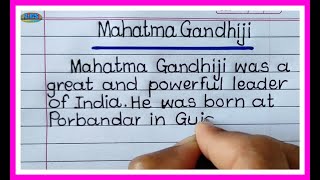 Mahatma Gandhiji
Mahatma Gandhiji was a
great and powerful leader
of India. He was born at
Porbandar in Guj